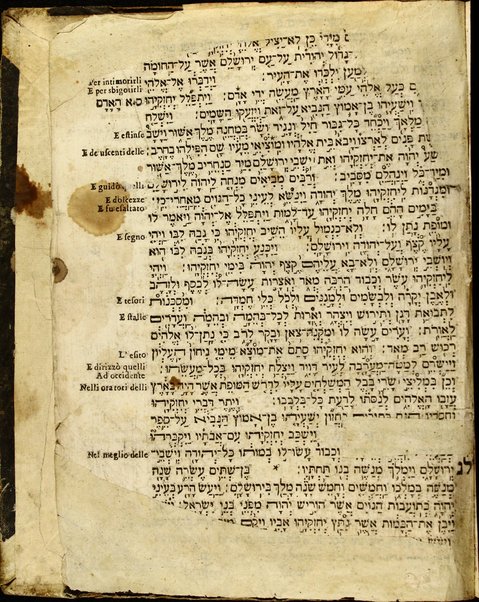 מִיָּדִי כֵּן לֹא־יַצִּיל אֱלֹהֵי יְחִזְקִיָּהוּ
גָּדוֹל יְהוּדִית עַל־עַם יְרוּשָׁלַםִ אֲשֶׁר עַל־הַחוֹמָה
לְמַעַן יִלְכְּדוּ אֶת־הָעִיר: וַיְדַבְּרוּ אֶל־אֱלֹהֵי
כְּעַל אֱלֹהֵי עַמֵּי הָאָרֶץ מַעֲשֵׂה יְדֵי אָדָם: וַיִּתְפַּלֵּל יְחִזְקִיָּהוּ ס״א הָאָדָם
וִישַׁעְיָהוּ בֶן־אָמוֹץ הַנָּבִיא עַל־זֹאת וַיִּזְעֲקוּ הַשָּׁמָיִם: וַיִּשְׁלַח
מַלְאָךְ וַיַּכְחֵד כָּל־גִּבּוֹר חַיִל וְנָגִיד וְשָׂר בְּמַחֲנֵה מֶלֶךְ אַשּׁוּר וַיָּשָׁב
בֹּשֶׁת פָּנִים לְאַרְצוֹ וַיָּבֹא בֵּית אֱלֹהָיו וּמִיצִיאֵי מֵעָיו שָׁם הִפִּילֻהוּ בֶחָרֶב:
יְהֹוָה אֶת־יְחִזְקִיָּהוּ וְאֵת יֹשְׁבֵי יְרוּשָׁלַםִ מִיַּד סַנְחֵרִיב מֶלֶךְ־אַשּׁוּר
וּמִיַּד־כֹּל וַיְנַהֲלֵם מִסָּבִיב: וְרַבִּים מְבִיאִים מִנְחָה לַיהֹוָה לִירוּשָׁלַםִ
וּמִגְדָּנוֹת לִיחִזְקִיָּהוּ מֶלֶךְ יְהוּדָה וַיִּנַּשֵּׂא לְעֵינֵי כָל־הַגּוֹיִם מֵאַחֲרֵי־כֵן:
בַּיָּמִים הָהֵם חָלָה יְחִזְקִיָּהוּ עַד־לָמוּת וַיִּתְפַּלֵּל אֶל־יְהֹוָה וַיֹּאמֶר לוֹ
וּמוֹפֵת נָתַן לוֹ: וְלֹא־כִגְמוּל עָלָיו הֵשִׁיב יְחִזְקִיָּהוּ כִּי גָבַהּ לִבּוֹ וַיְהִי
עָלָיו קֶצֶף וְעַל־יְהוּדָה וִירוּשָׁלָםִ: וַיִּכָּנַע יְחִזְקִיָּהוּ בְּגֹבַהּ לִבּוֹ הוּא
וְיֹשְׁבֵי יְרוּשָׁלָםִ וְלֹא־בָא עֲלֵיהֶם קֶצֶף יְהֹוָה בִּימֵי יְחִזְקִיָּהוּ: וַיְהִי
לִיחִזְקִיָּהוּ עֹשֶׁר וְכָבוֹד הַרְבֵּה מְאֹד וְאֹצָרוֹת עָשָׂה־לוֹ לְכֶסֶף וּלְזָהָב
וּלְאֶבֶן יְקָרָה וְלִבְשָׂמִים וּלְמָגִנִּים וּלְכֹל כְּלֵי חֶמְדָּה: וּמִסְכְּנוֹת
לִתְבוּאַת דָּגָן וְתִירוֹשׁ וְיִצְהָר וְאֻרָוֹת לְכָל־בְּהֵמָה וּבְהֵמָה וַעֲדָרִים
לָאֲוֵרוֹת: וְעָרִים עָשָׂה לוֹ וּמִקְנֵה־צֹאן וּבָקָר לָרֹב כִּי נָתַן־לוֹ אֱלֹהִים
רְכוּשׁ רַב מְאֹד: וְהוּא יְחִזְקִיָּהוּ סָתַם אֶת־מוֹצָא מֵימֵי גִיחוֹן הָעֶלְיוֹן
וַיַּישְּׁרֵם לְמַטָּה־מַּעְרָבָה לְעִיר דָּוִיד וַיַּצְלַח יְחִזְקִיָּהוּ בְּכָל־מַעֲשֵׂהוּ:
וְכֵן בִּמְלִיצֵי שָׂרֵי בָּבֶל הַמְשַׁלְּחִים עָלָיו לִדְרֹשׁ הַמּוֹפֵת אֲשֶׁר הָיָה בָאָרֶץ
עֲזָבוֹ הָאֱלֹהִים לְנַסּוֹתוֹ לָדַעַת כָּל־בִּלְבָבוֹ: וְיֶתֶר דִּבְרֵי יְחִזְקִיָּהוּ
וַחֲסָדָיו חֲזוֹן יְשַׁעְיָהוּ בֶן־אָמוֹץ הַנָּבִיא עַל־סֵפֶר
וַיִּשְׁכַּב יְחִזְקִיָּהוּ עִם־אֲבֹתָיו וַיִּקְבְּרֻהוּ
וְכָבוֹד עָשׂוּ־לוֹ בְמוֹתוֹ כָּל־יְהוּדָה וְיֹשְׁבֵי
לג
יְרוּשָׁלָםִ וַיִּמְלֹךְ מְנַשֶּׁה בְנוֹ תַּחְתָּיו: בֶּן־שְׁתֵּים עֶשְׂרֵה שָׁנָה
מְנַשֶּׁה בְמָלְכוֹ וַחֲמִשִּׁים וְחָמֵשׁ שָׁנָה מָלַךְ בִּירוּשָׁלָםִ: וַיַּעַשׂ הָרַע בְּעֵינֵי
יְהֹוָה כְּתוֹעֲבוֹת הַגּוֹיִם אֲשֶׁר הוֹרִישׁ יְהֹוָה מִפְּנֵי בְּנֵי יִשְׂרָאֵל:
וַיִּבֶן אֶת־הַבָּמוֹת אֲשֶׁר נִתַּץ יְחִזְקִיָּהוּ אָבִיו וַיָּקֶם
Per intimorirli
E per sbigotirli
E estinse
E de uscenti delle
E guidò quelli
E dolcezze
E fu esaltato
E segno
E tesori
E stalle
L'esito
E dirizzò quelli
Ad occidente
Nelli oratori delli
Nel meglio delle